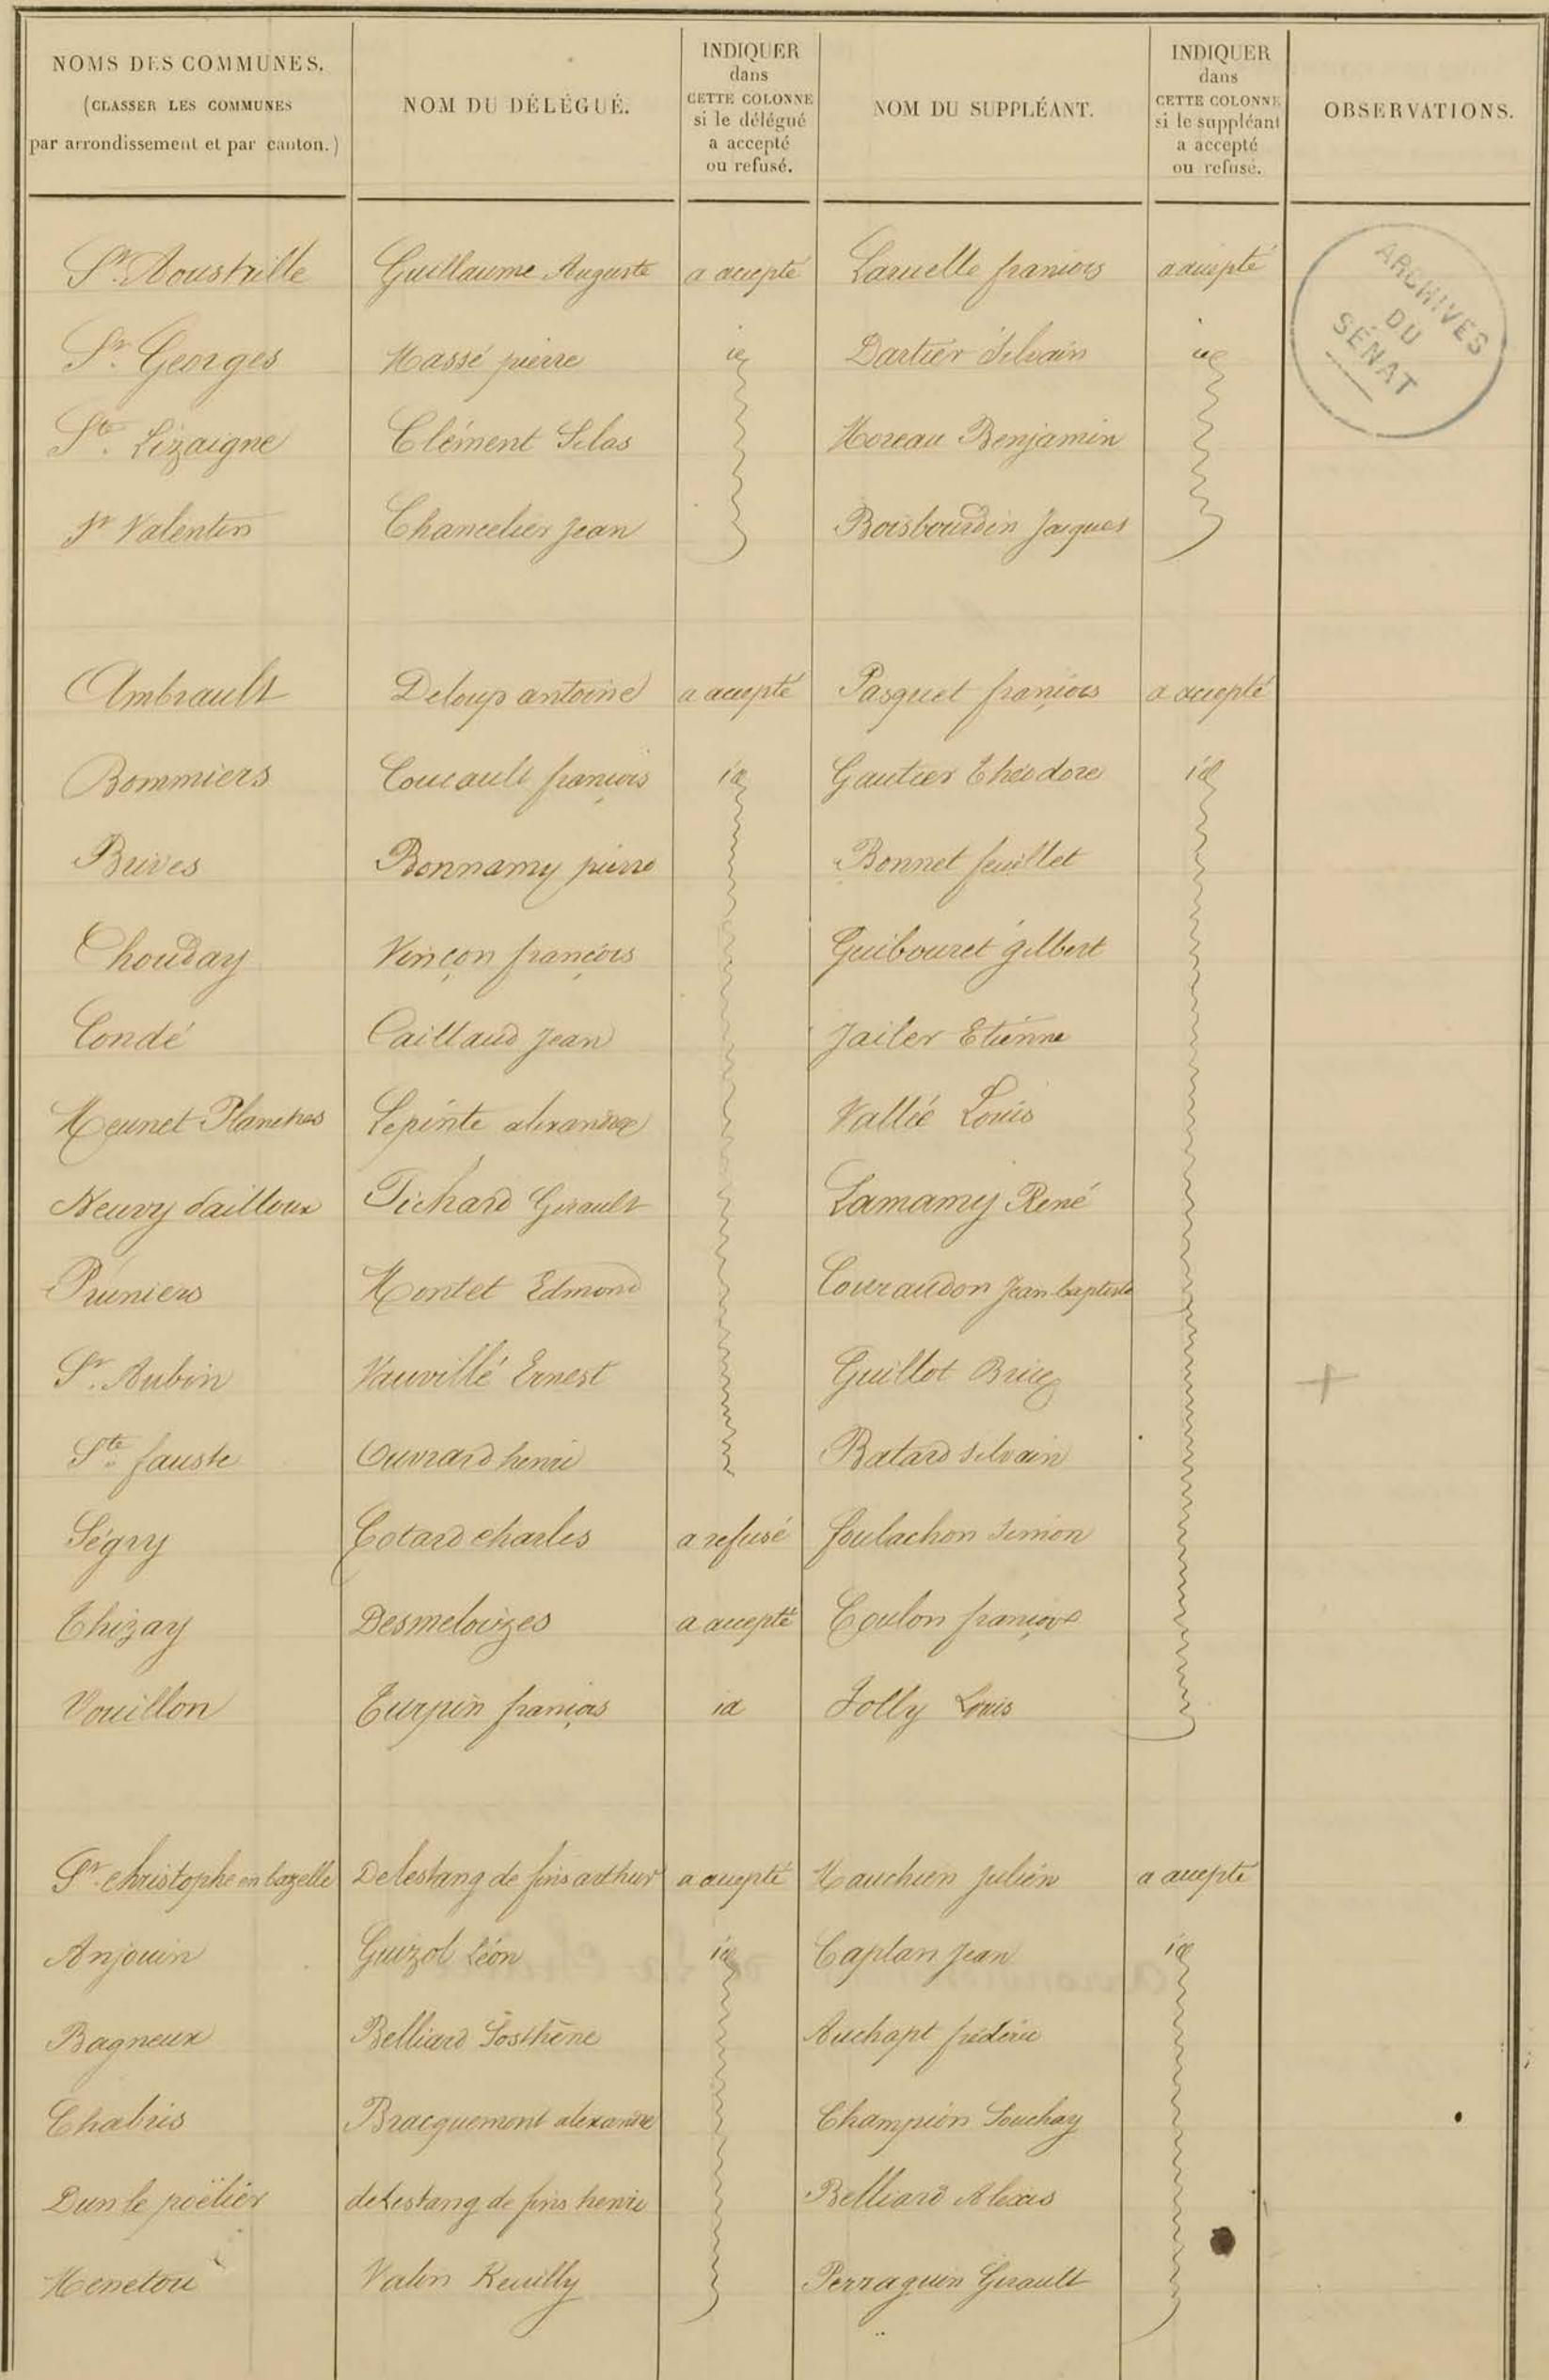 NOMS DES COMMUNES.
(CLASSER LES COMMUNES
par arrondissement et par canton.)
NOM DU DÉLÉGUÉ.
INDIQUER
dans
CETTE COLONNE
si le délégué
a accepté
ou refusé.
NOM DU SUPPLÉANT.
INDIQUER
dans
CETTE COLONNE
si le suppléant
a accepté
ou refusé.
OBSERVATIONS.
ARCHIVES
DU
SÉNAT
St. Aoustrille Guillaume Auguste a accepté Laruelle françois a accepté
St. Georges Massé pierre id Dartier Silvain id
Ste. Lizaigne Clément Silas Moreau Benjamin
St Valentin Chancelier Jean Boisbourdin Jacques
Ambrault Deloup antoine a accepté Pasquet françois a accepté
Bommiers Coucault françois id Gautier Théodore id
Brives Bonnamy pierre Bonnet feuillet
Chouday Vinçon françois Guibouret gilbert
Condé Caillaud Jean Jailer Etienne
Meunet Planches Lepinte alexandre Vallée Louis
Neuvy Pailloux Pichard Girault Lamamy René
Pruniers Montet Edmond Couraudon Jean-baptiste
St. Aubin Vauvillé Ernest Guillot Brice +
Ste. fauste Ouvrard henri Batard silvain
Ségry Cotard charles a refusé foulachon simon
Thizay Desmeloizes a accepté Coulon françois
Vouillon Turpin françois id Jolly Louis
St. christophe en bazelle Delestang de fins arthur a accepté Mauchien Julien a accepté
Anjouin Guizol Léon id Caplan Jean id
Bagneux Belliard Sosthène Auchapt frédéric
Chabris Bracquemont alexandre Champion Souchay
Dun le poëlier delestang de fins henri Belliard Alexis
Menetou Valin Reuilly Perraguin Girault